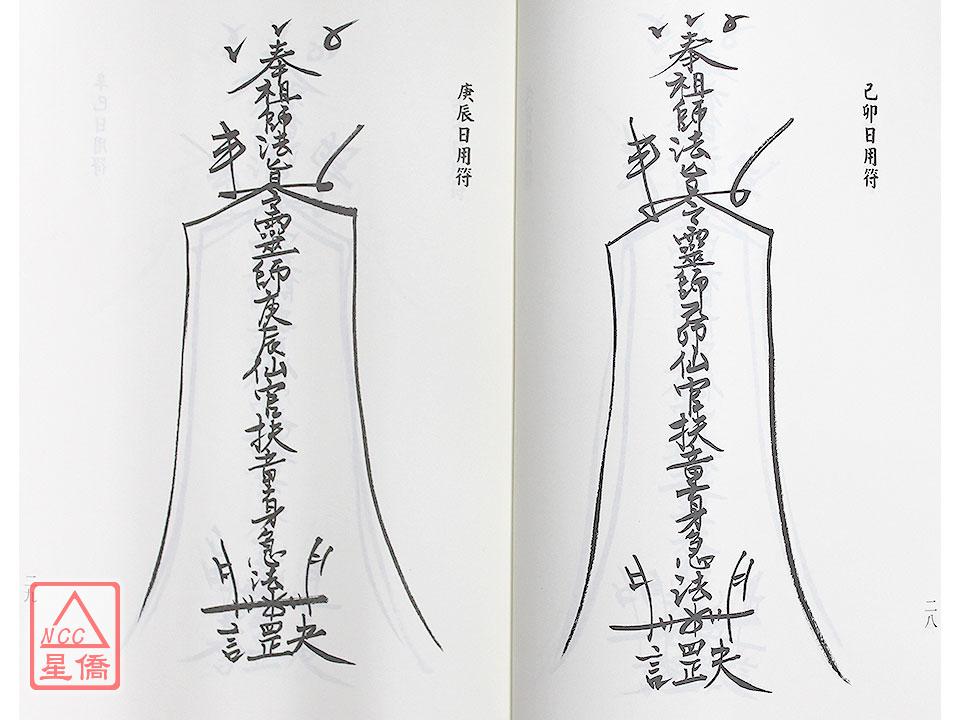 己卯日用符
奉祖師法旨令靈師己卯仙官扶童身急法
言罡夫
二八
庚辰日用符
奉祖師法旨令靈師庚辰仙官扶童身急法
言罡夫
二九
NCC
星僑